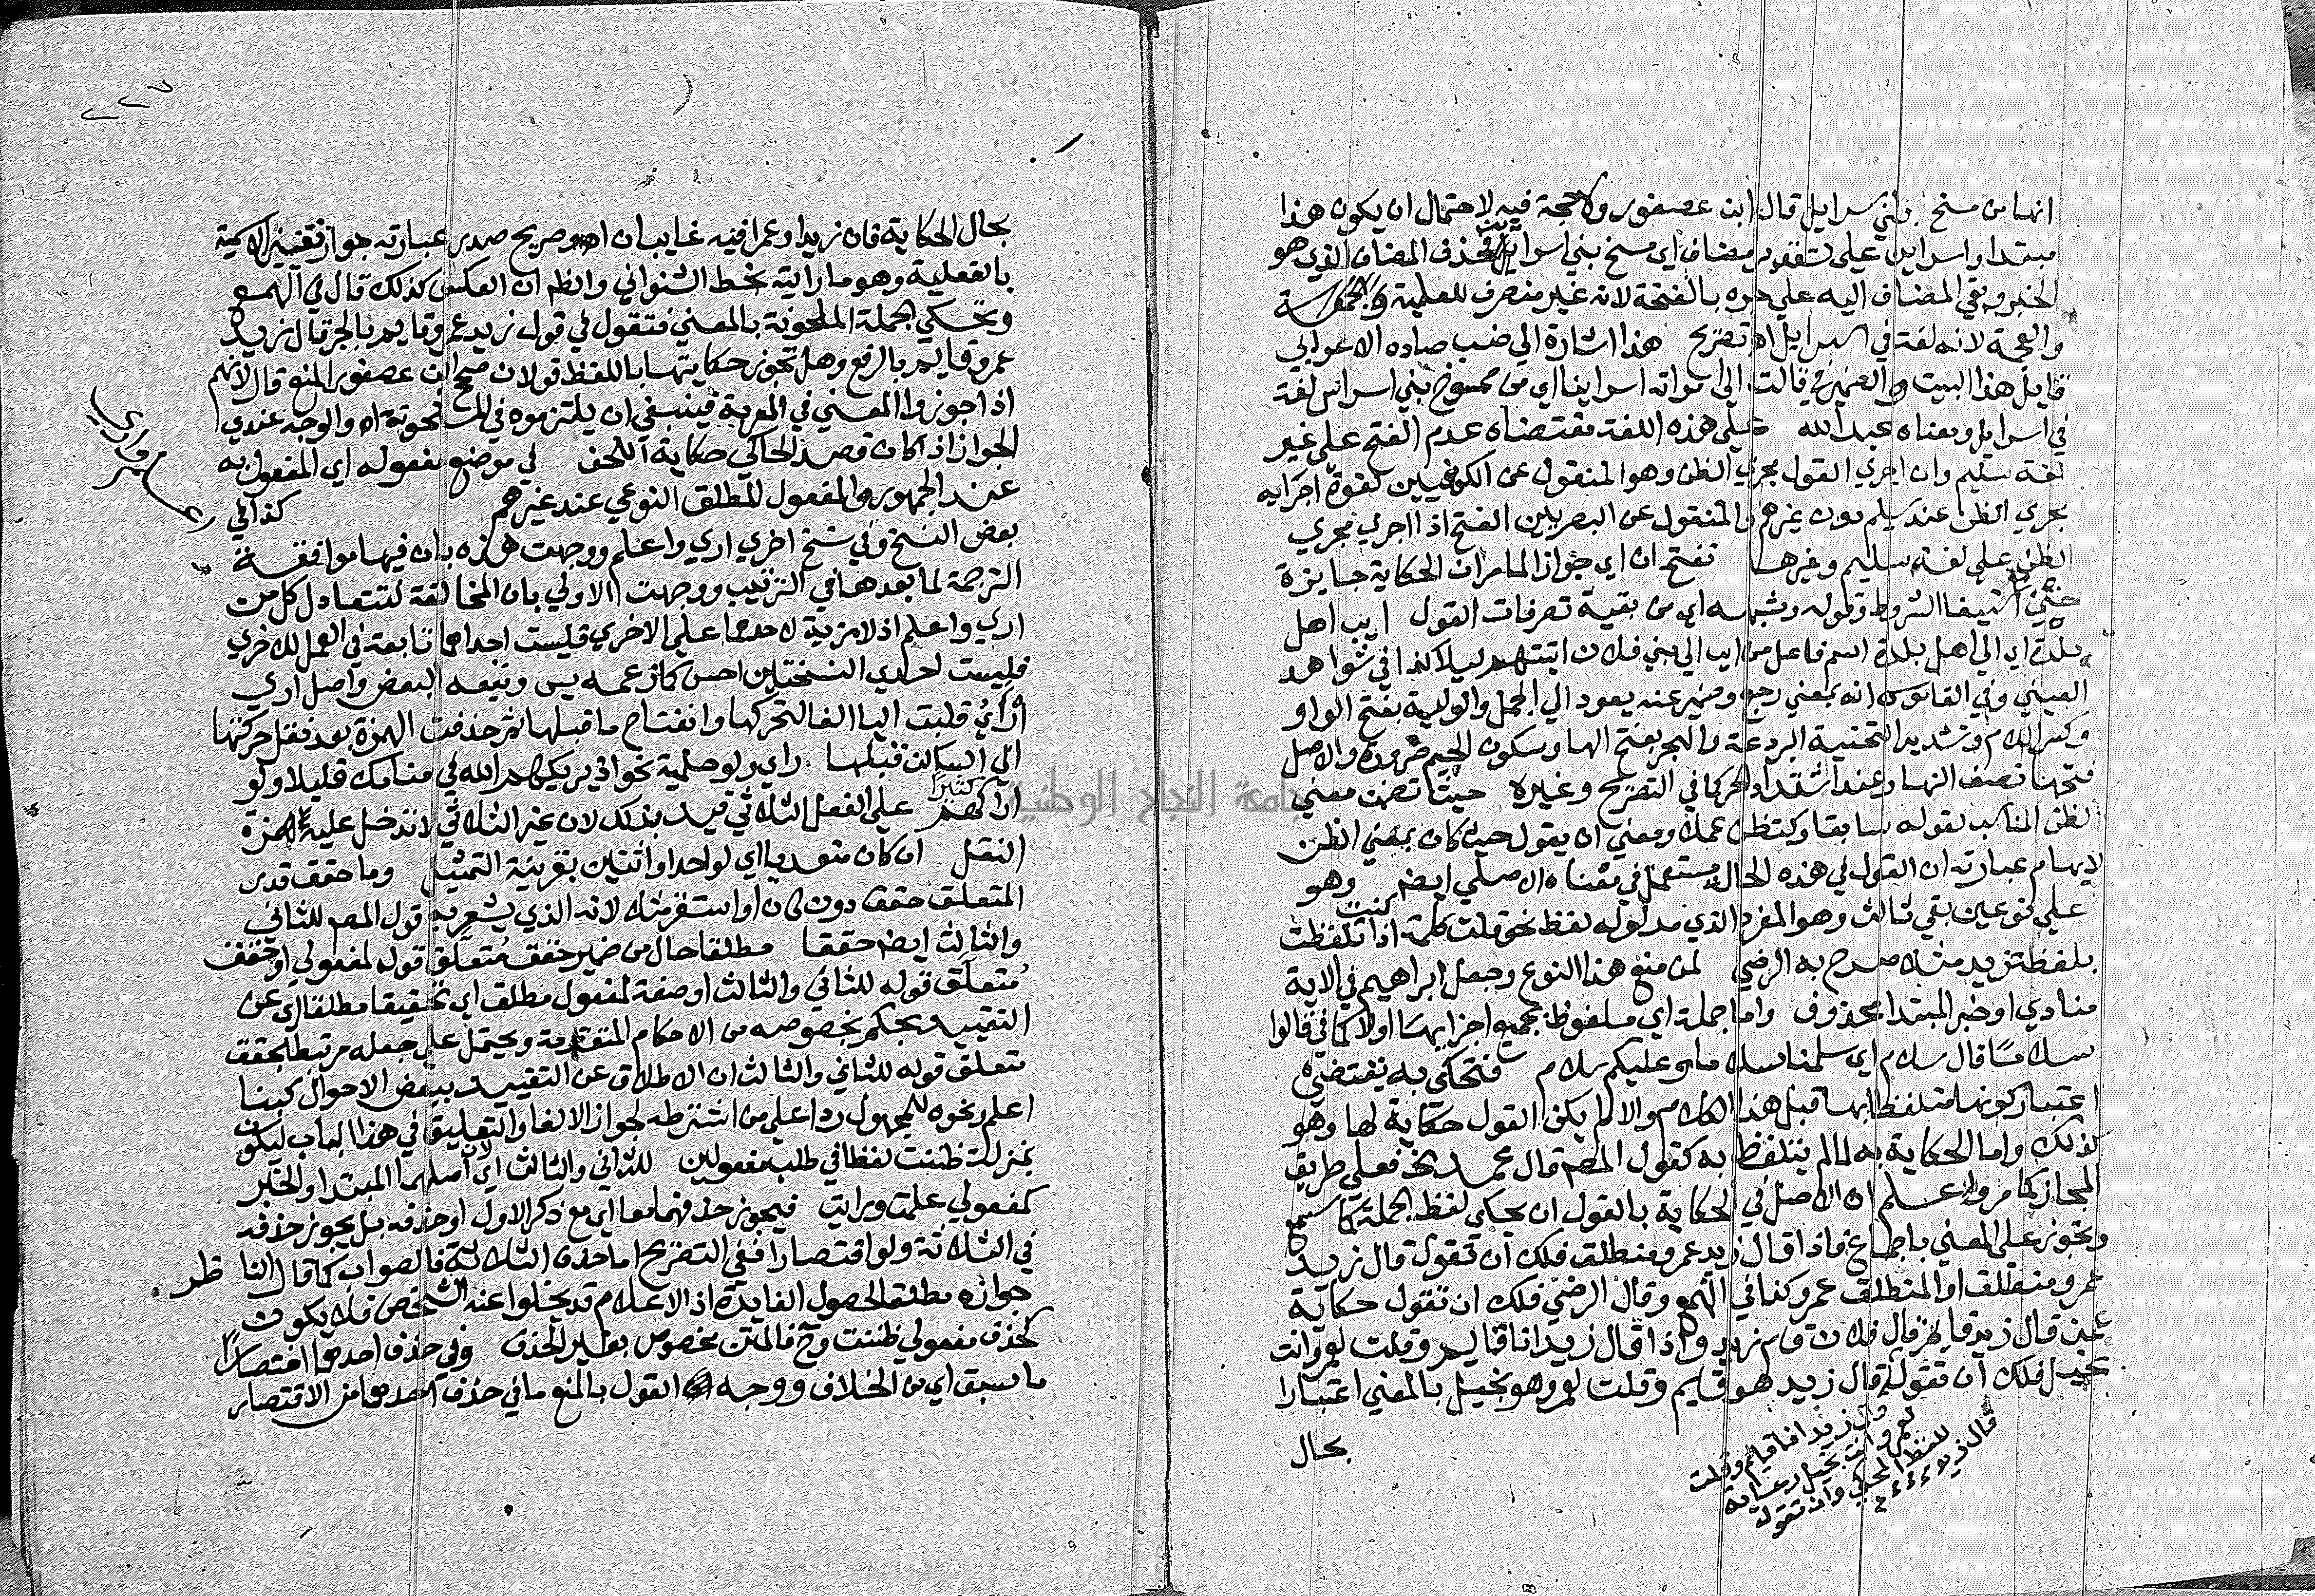 انها من مسخ بني اسرايل قال ابن عصفور ولا حجة فيه لاحتمال ان يكون هذا
مبتدا واسراين على تقدير مضاف اي مسخ بني اسراين فحذف المضاف الذي هو
الخبر وبقي المضاف اليه على جره بالفتحة لانه غير منصرف للعلمية
والعجمة لانه لغة في اسرايل اه تصريح هذا اشارة الى ضب صاده الاعرابي
قايل هذا البيت والضمير في قالت الى امراته اسراينا اي من ممسوخ بني اسراين لغة
في اسرايل ومعناه عبد الله على هذه اللغة مقتضاه عدم الفتح على غير
لغة سليم وان اجري القول مجرى الظن وهو المنقول عن الكوفيين لقوة اجرايه
مجرى الظن عند سليم دون غيرهم والمنقول عن البصريين الفتح اذا اجري مجرى
الظن على لغة سليم وغيرها تفتح ان اي جوازا لما مر ان الحكاية جايزة
حتى مع استيفا الشروط وقوله وشبهه اي من بقية تصرفات القول ايب اهل
بلدة اي الى اهل بلدة اسم فاعل من ايب الى بني فلان اتيتهم ليلا كذا في شواهد
العيني وفي القاموس انه بمعنى رجع وضمير عنه يعود الى الجمل والولية بفتح الواو
وكسر اللام وتشديد التحتية البردعة والهجر بفتح الها وسكون الجيم ضرورة والاصل
فتحها نصف النهار عند اشتداد الحر كما في التصريح وغيره حيث تضمن معنى
الظن المناسب لقوله سابقا وكتظن عملا ومعنى ان يقول حيث كان بمعنى الظن
لايهام عبارته ان القول في هذه الحالة مستعمل في معناه الاصلي ايضا وهو
على نوعين بقي ثالث وهو المفرد الذي مدلوله لفظ نحو قلت كلمة اذا كنت تلفظت
بلفظة زيد مثلا صرح به الرضي لمن منع هذا النوع وجعل ابراهيم في الاية
منادى او خبر المبتدا محذوف واما جملة اي ملفوظ بجميع اجزايها اولا كما في قالوا
سلاما قال سلام اي سلمنا سلاما وعليكم سلام فتحكى به يقتضي
اعتبار كونها متلفظا بها قبل هذا الكلام والا لم يكن القول حكاية لها وهو
كذلك واما الحكاية به لما لم يتلفظ به كقول المص قال محمد الخ فعلى طريق
المجاز كما مر واعلم ان الاصل في الحكاية بالقول ان يحكى لفظ الجملة كما سمع
ويجوز على المعنى باجماع فاذا قال زيد عمرو منطلق فلك ان تقول قال زيد
عمرو منطلق او المنطلق عمرو كذا في الهمع وقال الرضي فلك ان تقول حكاية
عمن قال زيد قايم قال فلان قام زيد واذا قال زيد انا قايم وقلت لعمرو انت
بخيل فلك ان تقول قال زيد هو قايم وقلت لعمرو هو بخيل بالمعنى اعتبارا
قال زيد انا قايم وقلت
لعمرو انت بخيل رعاية
للفظ المحكي وان تقول
قال زيد
بحال
٢٢٧
بحال الحكاية فان زيدا وعمرا فيه غايبان اه وصريح صدر عبارته جواز تغيير الاسمية
بالفعلية وهو ما رايته بخط الشنواني وانظر ان العكس كذلك قال في الهمع
وتحكى الجملة الملحونة بالمعنى فتقول في قول زيد عمرو قايم بالجر قال زيد
عمرو قايم بالرفع وهل تجوز حكايتها باللفظ قولان صحح ابن عصفور المنع قال لانهم
اذا جوزوا المعنى في المعربة فينبغي ان يلتزموه في الملحونة اه والوجه عندي
الجواز اذا كان قصد الحاكي حكاية اللحن في موضع مفعوله اي المفعول به
عند الجمهور والمفعول المطلق النوعي عند غيرهم كذا في
اعلم واري
بعض النسخ وفي نسخ اخرى ارى واعلم ووجهت هذه بان فيها موافقة
الترجمة لما بعدها في الترتيب ووجهت الاولى بان المخالفة لتتعادل كل من
ارى واعلم اذ لا مزية لاحدهما على الاخرى فليست احداهما تابعة في العمل للاخرى
فليست احدى النسختين احسن كما زعمه يس وتبعه البعض واصل ارى
أرأي قلبت اليا الفا لتحركها وانفتاح ما قبلها ثم حذفت الهمزة بعد نقل حركتها
الى الساكن قبلها راى ولو حلمية نحو اذ يريكهم الله في منامك قليلا ولو
اراكهم كثيرا على الفعل الثلاثي قيد بذلك لان غير الثلاثي لا تدخل عليه همزة
النقل ان كان متعديا اي لواحد او اثنين بقرينة التمثيل وما حقق قدر
المتعلق حقق دون كان او استقر مثلا لانه الذي يشعر به قول المص للثاني
والثالث ايضا حققا مطلقا حال من ضمير حقق متعلق قوله لمفعولي او حقق
متعلق قوله للثاني والثالث او صفة لمفعول مطلق اي تحقيقا مطلقا اي عن
التقييد بحكم بخصوصه من الاحكام المتقدمة ويحتمل على جعله مرتبطا بحقق
متعلق قوله للثاني والثالث ان الاطلاق عن التقييد ببعض الاحوال كبنا
اعلم ونحوه للمجهول ردا على من اشترطه لجواز الالغا والتعليق في هذا الباب ليكون
بمنزلة ظننت لفظا في طلب مفعولين للثاني والثالث اي لان اصلهما المبتدا والخبر
كمفعولي علمت ورايت فيجوز حذفهما معا اي مع ذكر الاول او حذفه بل يجوز حذفه
في الثلاثة ولو اقتصارا ففي التصريح اما حذف الثلاثة فالصواب كما قال الناظر
جوازه مطلقا لحصول الفايدة اذ الاعلام قد يخلوا عنه الشخص فلا يكون
كحذف مفعولي ظننت وح فالمتن مخصوص بغير الحذف وفي حذف احدهما اختصارا
ما سبق اي من الخلاف ووجه القول بالمنع ما في حذف احدهما من الاقتصار
جامعة النجاح الوطنية